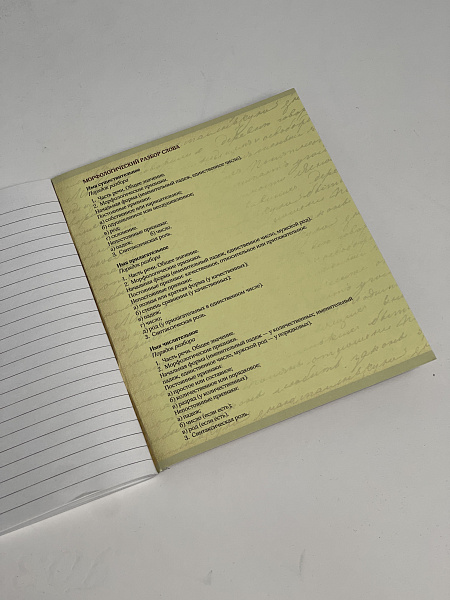 МОРФОЛОГИЧЕСКИЙ РАЗБОР СЛОВА
Имя существительное
Порядок разбора
1. Часть речи. Общее значение.
2. Морфологические признаки.
Начальная форма (именительный падеж, единственное число).
Постоянные признаки:
а) собственное или нарицательное;
б) одушевлённое или неодушевлённое;
в) род;
г) склонение.
Непостоянные признаки:
а) падеж; б) число.
3. Синтаксическая роль.
Имя прилагательное
Порядок разбора
1. Часть речи. Общее значение.
2. Морфологические признаки.
Начальная форма (именительный падеж, единственное число, мужской род).
Постоянные признаки: качественное, относительное или притяжательное.
Непостоянные признаки:
а) полная или краткая форма (у качественных);
б) степень сравнения (у качественных);
в) падеж;
г) число;
д) род (у прилагательных в единственном числе).
3. Синтаксическая роль.
Имя числительное
Порядок разбора
1. Часть речи. Общее значение.
2. Морфологические признаки.
Начальная форма (именительный падеж — у количественных; именительный
падеж, единственное число, мужской род — у порядковых).
Постоянные признаки:
а) простое или составное;
б) количественное или порядковое;
в) разряд (у количественных).
Непостоянные признаки:
а) падеж;
б) число (если есть);
в) род (если есть).
3. Синтаксическая роль.